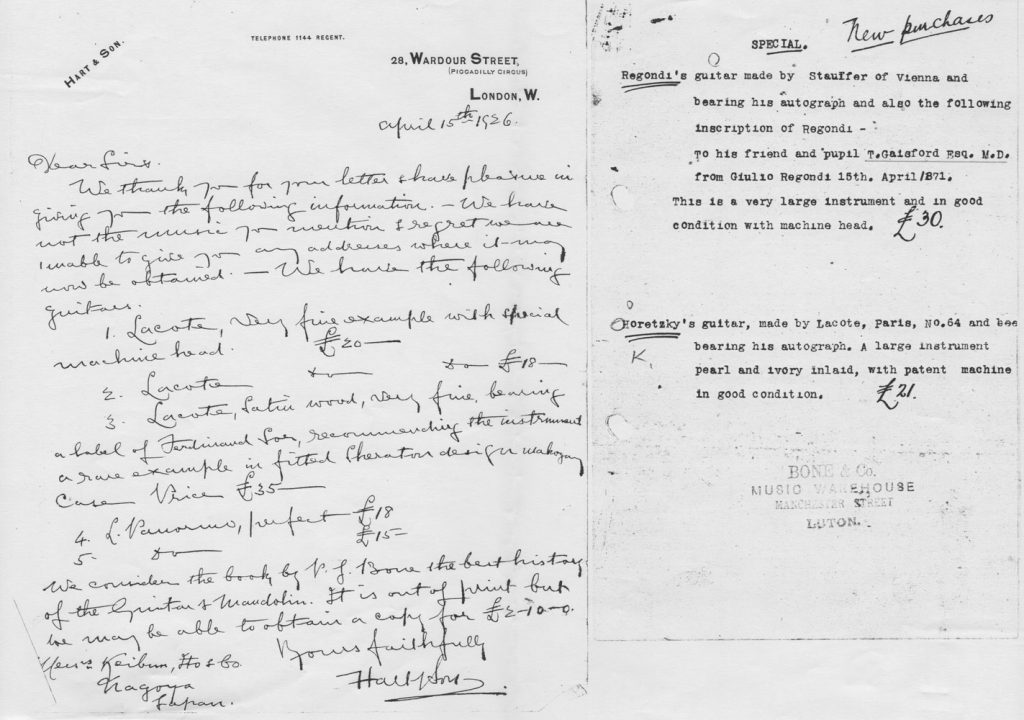 HART & SON.
TELEPHONE 1144 REGENT.
28, WARDOUR STREET,
(PICCADILLY CIRCUS)
LONDON, W.
April 15th 1926.
Dear Sirs.
We thank you for your letter & have pleasure in
giving you the following information. — We have
not the music you mention & regret we are
unable to give you any addresses where it may
now be obtained. — We have the following
guitars.
1. Lacote, very fine example with special
machine head. £20—
2. Lacote Do Do £18—
3. Lacote, Satin wood, very fine, bearing
a label of Ferdinand Sor, recommending the instrument
a rare example in fitted Sheraton design mahogany
Case Price £35—
4. L. Panormo, perfect £18
5. Do £15—
We consider the book by P. J. Bone the best history
of the Guitar & Mandolin. It is out of print but
we may be able to obtain a copy for £2-10-0
Yours faithfully
Hart & Son.
Messrs Keibun, Ito & Co.
Nagoya
Japan.
New purchases
SPECIAL.
Regondi's guitar made by Stauffer of Vienna and
bearing his autograph and also the following
inscription of Regondi -
To his friend and pupil T.Gaisford Esq. M.D.
from Giulio Regondi 15th. April/871.
This is a very large instrument and in good
condition with machine head. £30.
Horetzky's guitar, made by Lacote, Paris, No.64 and
K.
bearing his autograph. A large instrument
pearl and ivory inlaid, with patent machine
in good condition. £21.
BONE & Co.
MUSIC WAREHOUSE
MANCHESTER STREET
LUTON.